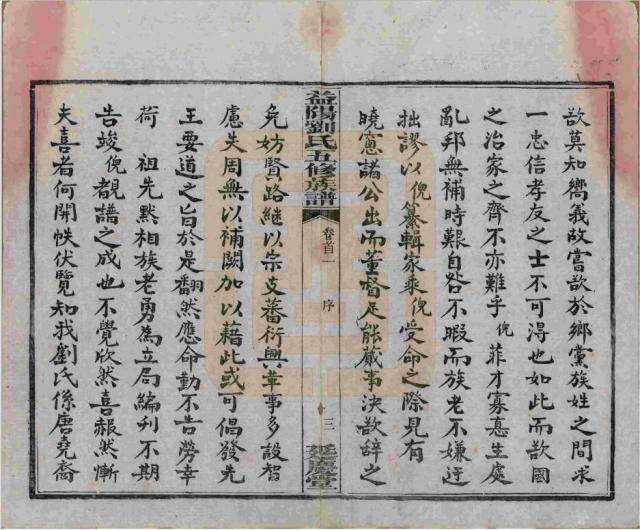 故莫知嚮我故嘗欲於鄉黨族姓之間求
一忠信孝友之士不可得也如此而欲國
之治家之齊不亦難乎倪菲才寡悳生處
亂邦無補時艱自咎不暇而族老不嫌迂
拙謬以倪纂輯家乘倪受命之際見有
曉窻諸公出而董督足能蕆事決欲辞之
益陽劉氏五修族譜
卷首一
序
三
延慶堂
免妨賢路継以宗支蕃衍興革事多設智
慮失周無以補闕加以藉此或可倡發先
王要道之旨於是翻然應命動不告勞幸
荷　祖先黙相族老勇為立局編刋不期
告竣倪覩譜之成也不覺欣然喜赧然慚
夫喜者何開帙伏覽知我劉氏係唐堯裔